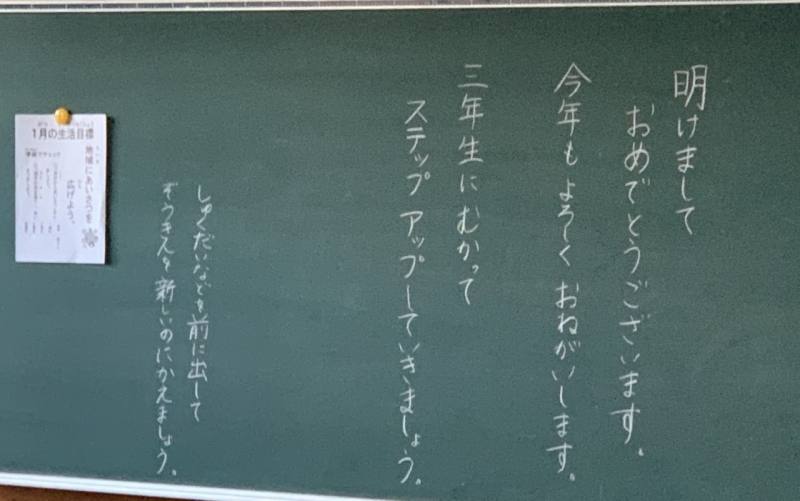 明けまして
おめでとうございます。
今年もよろしくおねがいします。
三年生にむかって
ステップアップしていきましょう。
しゅくだいなどを前に出して
ぞうきんを新しいのにかえましょう。
1月の生活目標
地域にあいさつを
広げよう。